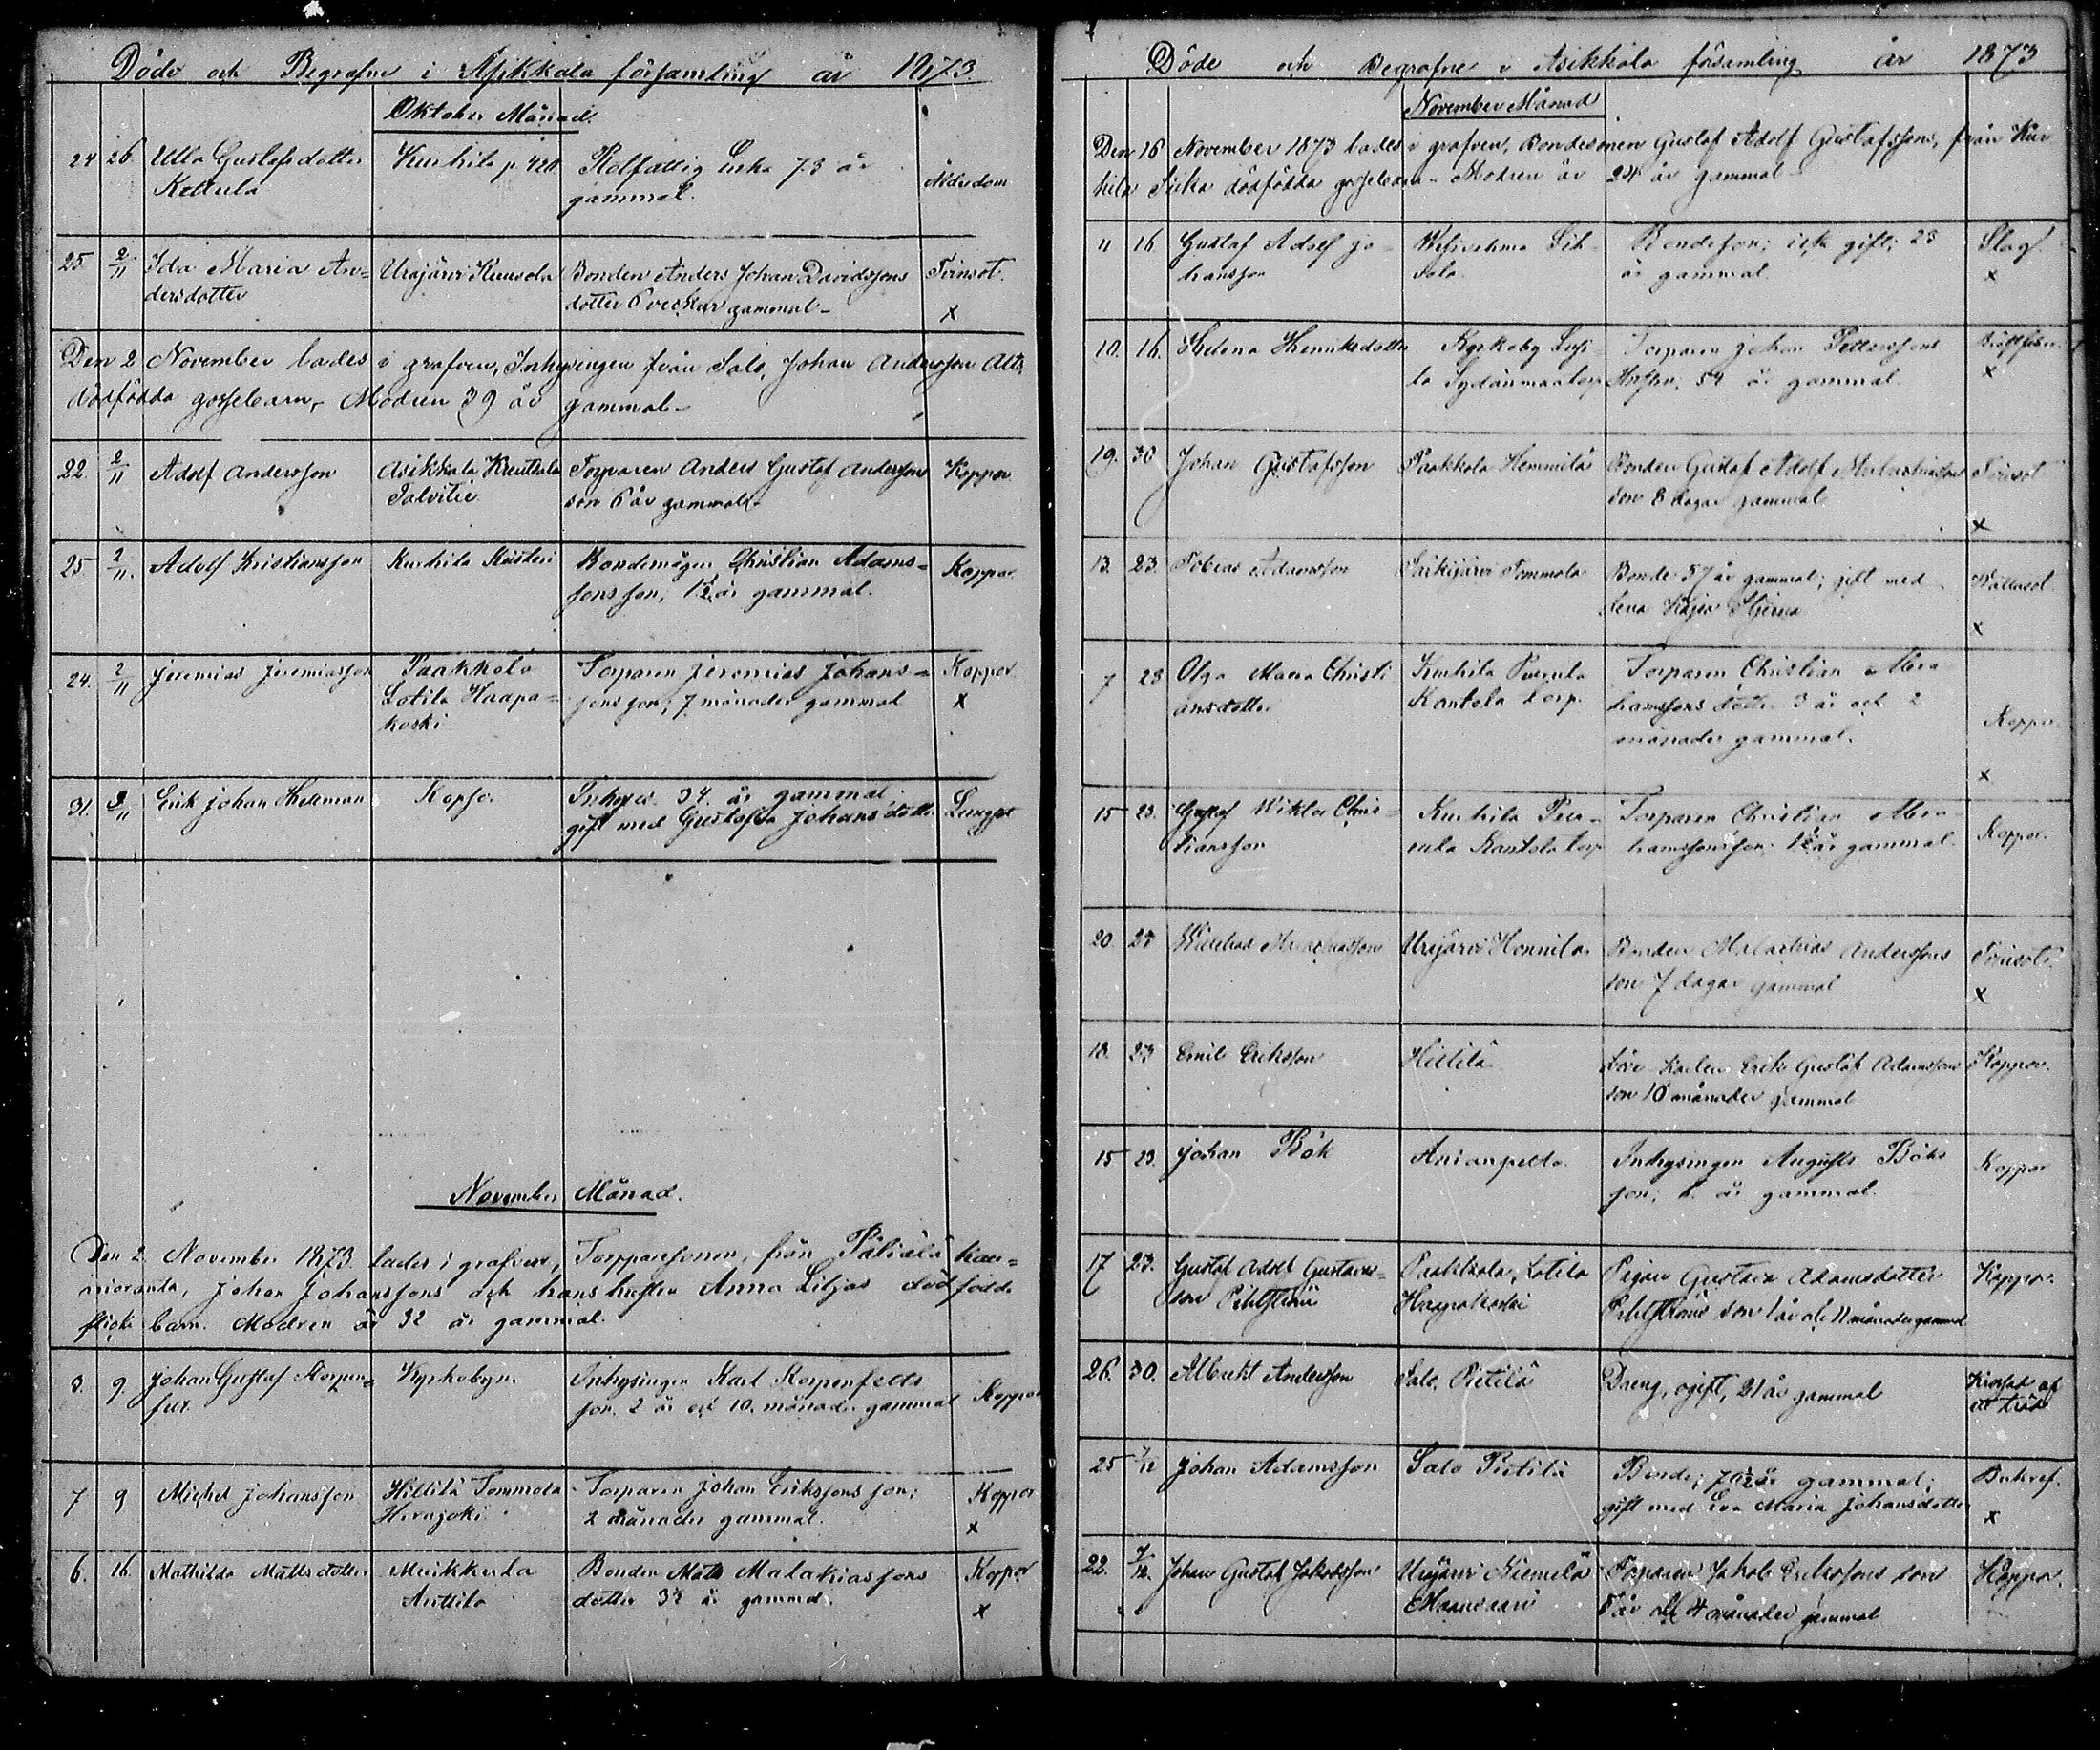 Döde och Begrafne i Asikkala församling år 1873.
Oktober Månad.
24 26 Ulla Gustafsdotter Kurhila Rotfattig Enka 73 år Ålderdom
Kellula gammal.
25 2/11 Ida Maria An- Urajärvi Kuusola Bonden Anders Johan Davidssons Trinsot
dersdotter dotter 6 veckor gammal x
Den 2 November lades i grafven, Inhysingen från Salo, Johan Andersson Alts
dödfödda gossebarn, Modren 39 år gammal
22. 2/11 Adolf Andersson Asikkala Kreuthala Torparen Anders Gustaf Anderssons Koppor
Talvitie son 6 år gammal
25 2/11. Adolf Kristiansson Kurhila Knuteri Bondemågen Christian Adams- Koppor
sons son, 1½ år gammal.
24. 2/11 Jeremias Jeremiasson Paakkola Torparen Jeremias Johans- Koppor
Lotila Haapa- sons son; 7 månader gammal x
koski
31. 9/11 Erik Johan Helleman Kopso. Inhyses. 34. år gammal Lungsot
gift med Gustafva Johansdotter
November Månad.
Den 2 November 1873 lades i grafven, Torparesonen, från Pätiälä Kau-
nioranta, Johan Johanssons och hans hustru Anna Liljas dödfödda
flickebarn. Modren är 32 år gammal.
3. 9. Johan Gustaf Korpen- Kyrkobyn Inhysingen Karl Korpenfelts Koppor
felt son. 2 år och 10. månader gammal
7 9 Michel Johansson Hillilä Tommola Torparen Johan Erikssons son; Koppor
Hirvijoki 2 månader gammal. x
6. 16. Mathilda Mattsdotter Muikkula Bonden Matts Malakiassons Koppor
Anttila dotter 3½ år gammal. x
Döde och Begrafne i Asikkala församling år 1873
November Månad
Den 16 November 1873 lades i grafven, Bondesonen Gustaf Adolf Gustafssons, från Kur
hila dödfödda gossebarn. Modren är 24 år gammal
11 16. Gustaf Adolf Jo- Vesivehma Bondeson; icke gift; 23 Slag.
hansson år gammal. x
10. 16. Helena Henriksdotter Kyrkoby Torparen Johan Petterssons
Sydänmaa torp Hustru; 54 år gammal. x
19. 30 Johan Gustafsson Paakkola Hemmilä Bonden Gustaf Adolf Malachiassons Trinsot
son 8 dagar gammal x
13. 23. Tobias Adamsson Särkijärvi Tommola Bonde 57 år gammal; gift med
Lena Kajsa x
7 23 Olga Maria Christi Kurhila Torparen Christian Abra
ansdotter Kantola torp. hamssons dotter 3 år och 2 Koppor
månader gammal. x
15 23. Gustaf Wiktor Chris- Kurhila Torparen Christian Abra- Koppor.
tiansson Kantola torp hamssons son; 1½ år gammal.
20. 23 Urajärvi Hennila Bonden Malachias Anderssons Trinsot.
son 7 dagar gammal x
18. 23 Emil Eriksson Hillilä Erik Gustaf Adamssons Koppor.
son 10 månader gammal
15 23. Johan Bök Anianpelto. Inhysingen Augusts Böks Koppor
son; år gammal.
17 23. Gustaf Adolf Gustavas- Paakkola, Lotila Pigan Gustava Adamsdotter Koppor.
son Haapakoski son 1 år och 11 månader gammal
26. 30. Albrekt Andersson Salo, Pietilä Dreng, ogift, 21 år gammal Krossad af
ett träd
25 7/12 Johan Adamsson Salo Pietilä Bonde; 70½ år gammal; Bukref.
gift med Eva Maria Johansdotter x
22. 7/12. Johan Gustaf Jakobsson Urajärvi Niemilä Torparen Jakob Erikssons son Koppor.
5 år och 4 månader gammal